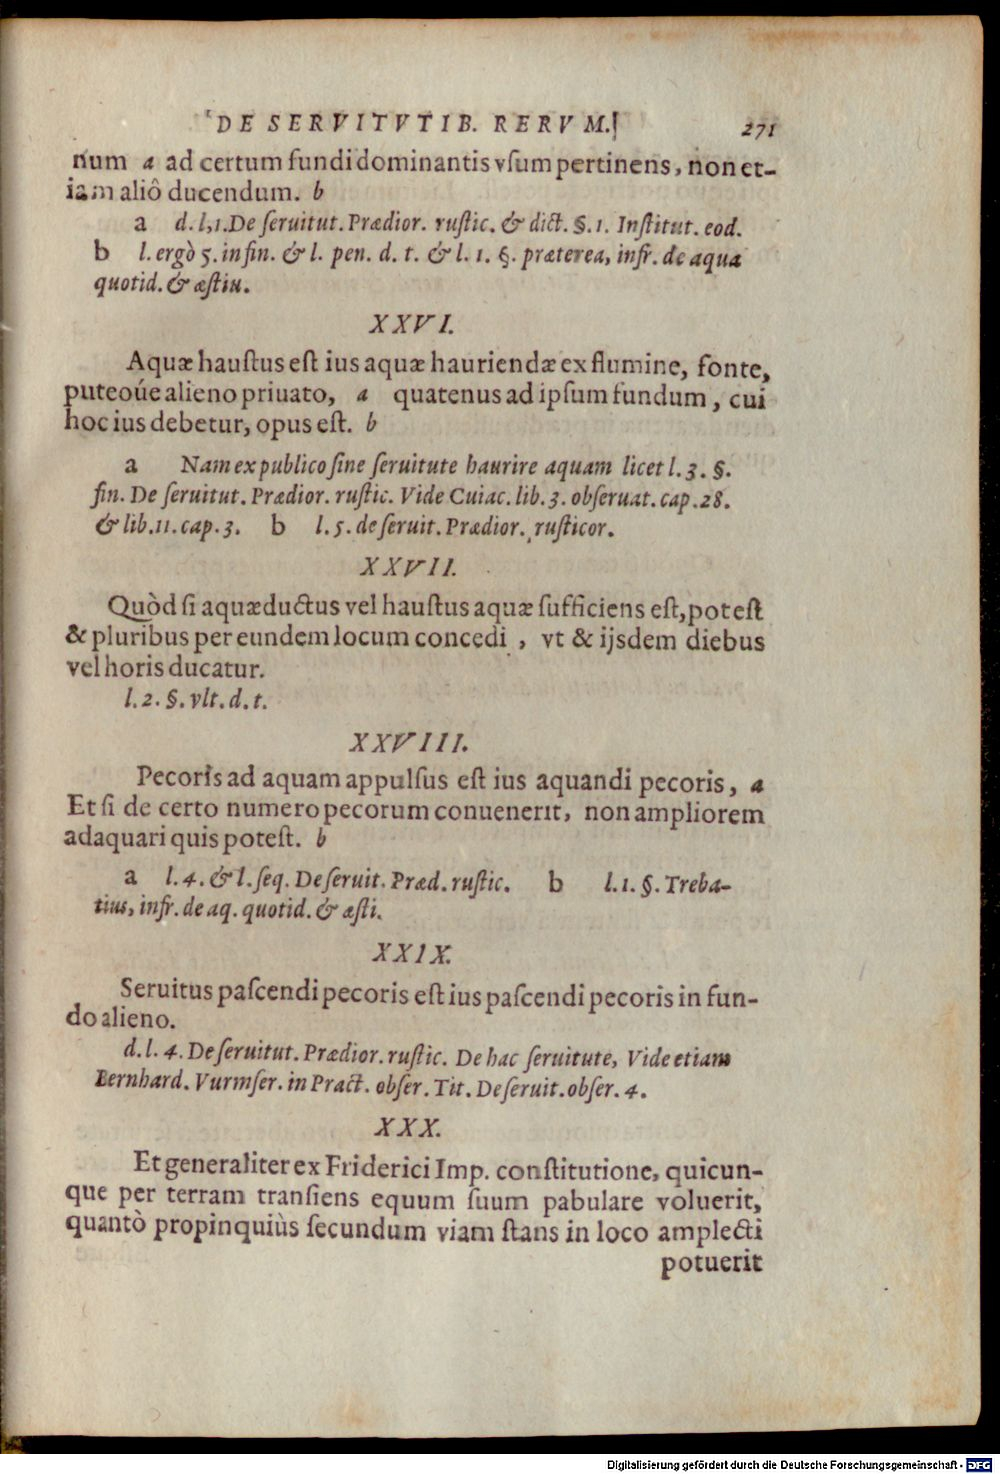 DE SERVITVTIB. RERVM. 271
num a ad certum fundi dominantis vſum pertinens, non et-
iam aliô ducendum. b
a d. l, 1. De ſeruitut. Prædior. ruſtic. & dict. §. 1. Inſtitut. eod.
b l. ergò 5. in fin. & l. pen. d. t. & l. 1. §. præterea, infr. de aqua
quotid. & æſtiu.
XXVI.
Aquæ hauſtus eſt ius aquæ hauriendæ ex flumine, fonte,
puteoúe alieno priuato, a quatenus ad ipſum fundum, cui
hoc ius debetur, opus eſt. b
a Nam ex publico ſine ſeruitute haurire aquam licet l. 3. §.
fin. De ſeruitut. Prædior. ruſtic. Vide Cuiac. lib. 3. obſeruat. cap. 28.
& lib. 11. cap. 3. b l. 5. de ſeruit. Prædior. ruſticor.
XXVII.
Quòd ſi aquæductus vel hauſtus aquæ ſufficiens eſt, poteſt
& pluribus per eundem locum concedi, vt & ijsdem diebus
vel horis ducatur.
l. 2. §. vlt. d. t.
XXVIII.
Pecoris ad aquam appulſus eſt ius aquandi pecoris, a
Et ſi de certo numero pecorum conuenerit, non ampliorem
adaquari quis poteſt. b
a l. 4. & l. ſeq. De ſeruit. Præd. ruſtic. b l. 1. §. Treba-
tius, infr. de aq. quotid. & æſti.
XXIX.
Seruitus paſcendi pecoris eſt ius paſcendi pecoris in fun-
do alieno.
d. l. 4. De ſeruitut. Prædior. ruſtic. De hac ſeruitute, Vide etiam
Bernhard. Vurmſer. in Pract. obſer. Tit. De ſeruit. obſer. 4.
XXX.
Et generaliter ex Friderici Imp. conſtitutione, quicun-
que per terram tranſiens equum ſuum pabulare voluerit,
quantò propinquiùs ſecundum viam ſtans in loco amplecti
potuerit
Digitalisierung gefördert durch die Deutsche Forschungsgemeinschaft - DFG